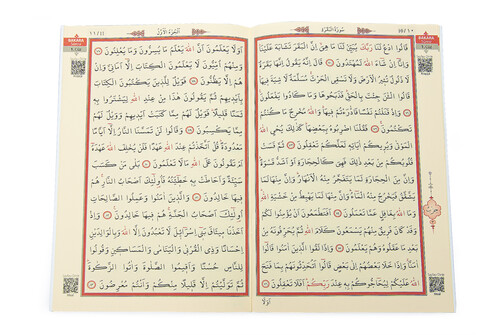 سُورَةُ الْبَقَرَةِ
قَالُوا ادْعُ لَنَا رَبَّكَ يُبَيِّنْ لَنَا مَا هِيَ إِنَّ الْبَقَرَ تَشَابَهَ عَلَيْنَا
وَإِنَّا إِنْ شَاءَ اللَّهُ لَمُهْتَدُونَ قَالَ إِنَّهُ يَقُولُ إِنَّهَا بَقَرَةٌ
لَا ذَلُولٌ تُثِيرُ الْأَرْضَ وَلَا تَسْقِي الْحَرْثَ مُسَلَّمَةٌ لَا شِيَةَ فِيهَا
قَالُوا الْآنَ جِئْتَ بِالْحَقِّ فَذَبَحُوهَا وَمَا كَادُوا يَفْعَلُونَ
وَإِذْ قَتَلْتُمْ نَفْسًا فَادَّارَأْتُمْ فِيهَا وَاللَّهُ مُخْرِجٌ مَا كُنْتُمْ
تَكْتُمُونَ فَقُلْنَا اضْرِبُوهُ بِبَعْضِهَا كَذَلِكَ يُحْيِي اللَّهُ
الْمَوْتَى وَيُرِيكُمْ آيَاتِهِ لَعَلَّكُمْ تَعْقِلُونَ ثُمَّ قَسَتْ
قُلُوبُكُمْ مِنْ بَعْدِ ذَلِكَ فَهِيَ كَالْحِجَارَةِ أَوْ أَشَدُّ قَسْوَةً
وَإِنَّ مِنَ الْحِجَارَةِ لَمَا يَتَفَجَّرُ مِنْهُ الْأَنْهَارُ وَإِنَّ مِنْهَا لَمَا
يَشَّقَّقُ فَيَخْرُجُ مِنْهُ الْمَاءُ وَإِنَّ مِنْهَا لَمَا يَهْبِطُ مِنْ خَشْيَةِ اللَّهِ
وَمَا اللَّهُ بِغَافِلٍ عَمَّا تَعْمَلُونَ أَفَتَطْمَعُونَ أَنْ يُؤْمِنُوا لَكُمْ
وَقَدْ كَانَ فَرِيقٌ مِنْهُمْ يَسْمَعُونَ كَلَامَ اللَّهِ ثُمَّ يُحَرِّفُونَهُ مِنْ
بَعْدِ مَا عَقَلُوهُ وَهُمْ يَعْلَمُونَ وَإِذَا لَقُوا الَّذِينَ آمَنُوا قَالُوا
آمَنَّا وَإِذَا خَلَا بَعْضُهُمْ إِلَى بَعْضٍ قَالُوا أَتُحَدِّثُونَهُمْ بِمَا فَتَحَ
اللَّهُ عَلَيْكُمْ لِيُحَاجُّوكُمْ بِهِ عِنْدَ رَبِّكُمْ أَفَلَا تَعْقِلُونَ
أَوَلَا
BAKARA
أَوَلَا يَعْلَمُونَ أَنَّ اللَّهَ يَعْلَمُ مَا يُسِرُّونَ وَمَا يُعْلِنُونَ
وَمِنْهُمْ أُمِّيُّونَ لَا يَعْلَمُونَ الْكِتَابَ إِلَّا أَمَانِيَّ وَإِنْ
هُمْ إِلَّا يَظُنُّونَ فَوَيْلٌ لِلَّذِينَ يَكْتُبُونَ الْكِتَابَ
بِأَيْدِيهِمْ ثُمَّ يَقُولُونَ هَذَا مِنْ عِنْدِ اللَّهِ لِيَشْتَرُوا بِهِ
ثَمَنًا قَلِيلًا فَوَيْلٌ لَهُمْ مِمَّا كَتَبَتْ أَيْدِيهِمْ وَوَيْلٌ لَهُمْ
مِمَّا يَكْسِبُونَ وَقَالُوا لَنْ تَمَسَّنَا النَّارُ إِلَّا أَيَّامًا
مَعْدُودَةً قُلْ أَتَّخَذْتُمْ عِنْدَ اللَّهِ عَهْدًا فَلَنْ يُخْلِفَ اللَّهُ عَهْدَهُ
أَمْ تَقُولُونَ عَلَى اللَّهِ مَا لَا تَعْلَمُونَ بَلَى مَنْ كَسَبَ
سَيِّئَةً وَأَحَاطَتْ بِهِ خَطِيئَتُهُ فَأُولَئِكَ أَصْحَابُ النَّارِ هُمْ
فِيهَا خَالِدُونَ وَالَّذِينَ آمَنُوا وَعَمِلُوا الصَّالِحَاتِ
أُولَئِكَ أَصْحَابُ الْجَنَّةِ هُمْ فِيهَا خَالِدُونَ وَإِذْ
أَخَذْنَا مِيثَاقَ بَنِي إِسْرَائِيلَ لَا تَعْبُدُونَ إِلَّا اللَّهَ وَبِالْوَالِدَيْنِ
إِحْسَانًا وَذِي الْقُرْبَى وَالْيَتَامَى وَالْمَسَاكِينِ وَقُولُوا
لِلنَّاسِ حُسْنًا وَأَقِيمُوا الصَّلَوةَ وَآتُوا الزَّكَوةَ
ثُمَّ تَوَلَّيْتُمْ إِلَّا قَلِيلًا مِنْكُمْ وَأَنْتُمْ مُعْرِضُونَ